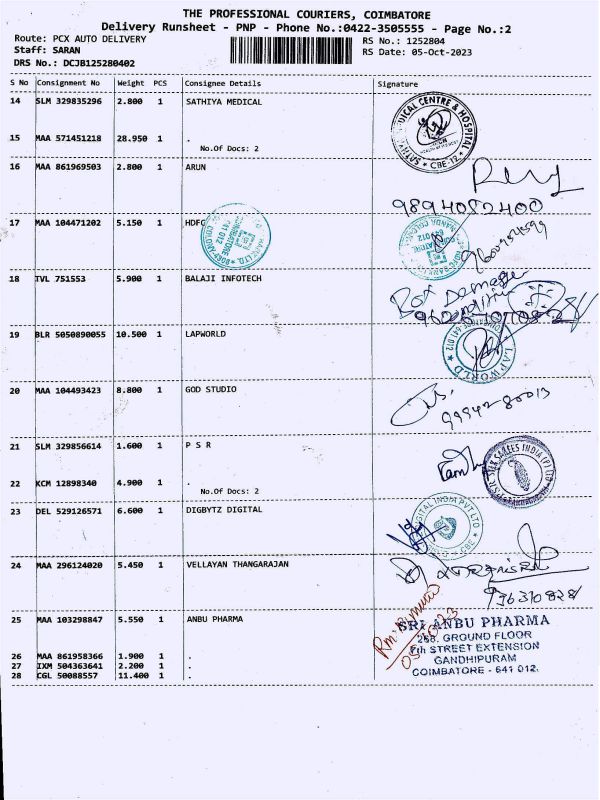 THE PROFESSIONAL COURIERS, COIMBATORE
Delivery Runsheet - PNP - Phone No.:0422-3505555 - Page No.:2
Route: PCX AUTO DELIVERY
RS No.: 1252804
Staff: SARAN
RS Date: 05-Oct-2023
DRS No.: DCJB125280402
S No Consignment No Weight PCS Consignee Details Signature
14 SLM 329835296 2.800 1 SATHIYA MEDICAL
MEDICAL CENTRE & HOSPITAL
CBE-12
15 MAA 571451218 28.950 1 .
No.Of Docs: 2
16 MAA 861969503 2.800 1 ARUN
9894052400
17 MAA 104471202 5.150 1 HDFC
18 TVL 751553 5.900 1 BALAJI INFOTECH
Box Damage
19 BLR 5050890055 10.500 1 LAPWORLD
LAPWORLD
COIMBATORE-641 012
20 MAA 104493423 8.800 1 GOD STUDIO
9994280013
21 SLM 329856614 1.600 1 P S R
SILK SAREES INDIA (P) LTD
22 KCM 12898340 4.900 1 .
No.Of Docs: 2
23 DEL 529126571 6.600 1 DIGBYTZ DIGITAL
DIGITAL INDIA PVT LTD
CBE
24 MAA 296124020 5.450 1 VELLAYAN THANGARAJAN
25 MAA 103298847 5.550 1 ANBU PHARMA
SRI ANBU PHARMA
258. GROUND FLOOR
7th STREET EXTENSION
GANDHIPURAM
COIMBATORE - 641 012.
26 MAA 861958366 1.900 1 .
27 IXM 504363641 2.200 1 .
28 CGL 50088557 11.400 1 .